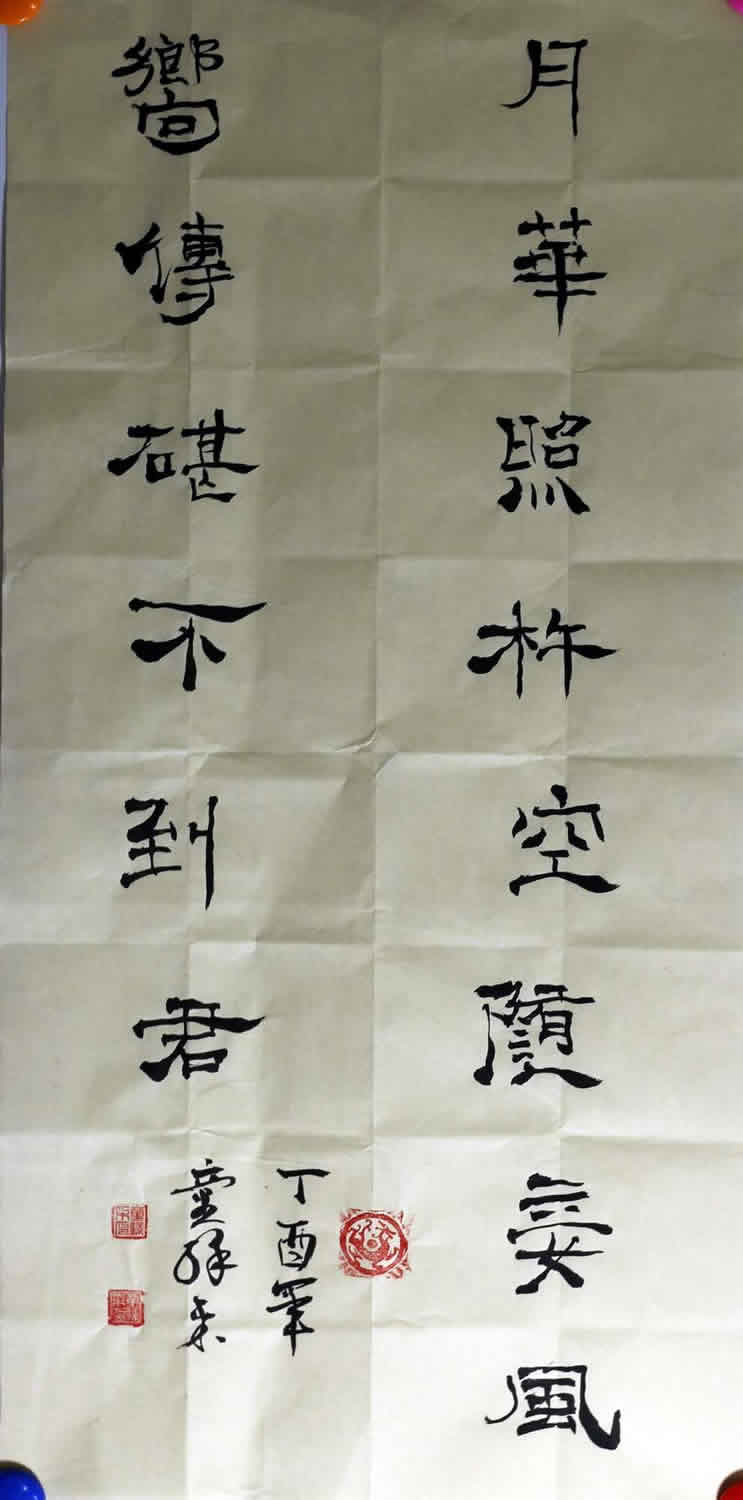 月華照杵空隨妾風
嚮傳碪不到君
丁酉年
童